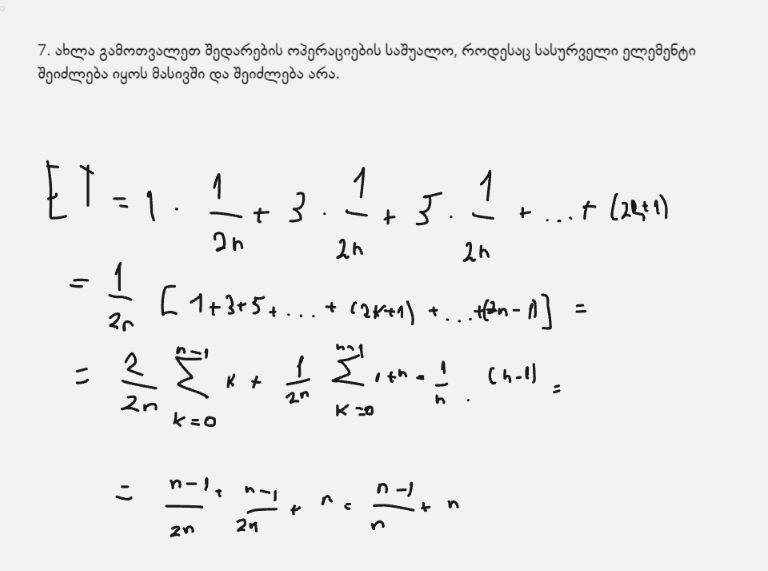 7. ახლა გამოთვალეთ შედარების ოპერაციების საშუალო, როდესაც სასურველი ელემენტი
შეიძლება იყოს მასივში და შეიძლება არა.
E T = 1 · 1/2n + 3 · 1/2n + 5 · 1/2n + ... + (2k+1)
= 1/2n [ 1+3+5+...+ (2k+1) + ...+(2n-1)] =
= 2/2n ∑_{k=0}^{n-1} k + 1/2n ∑_{k=0}^{n-1} 1 + n = 1/n · (n-1) =
= n-1/2n + n-1/2n + n = n-1/n + n